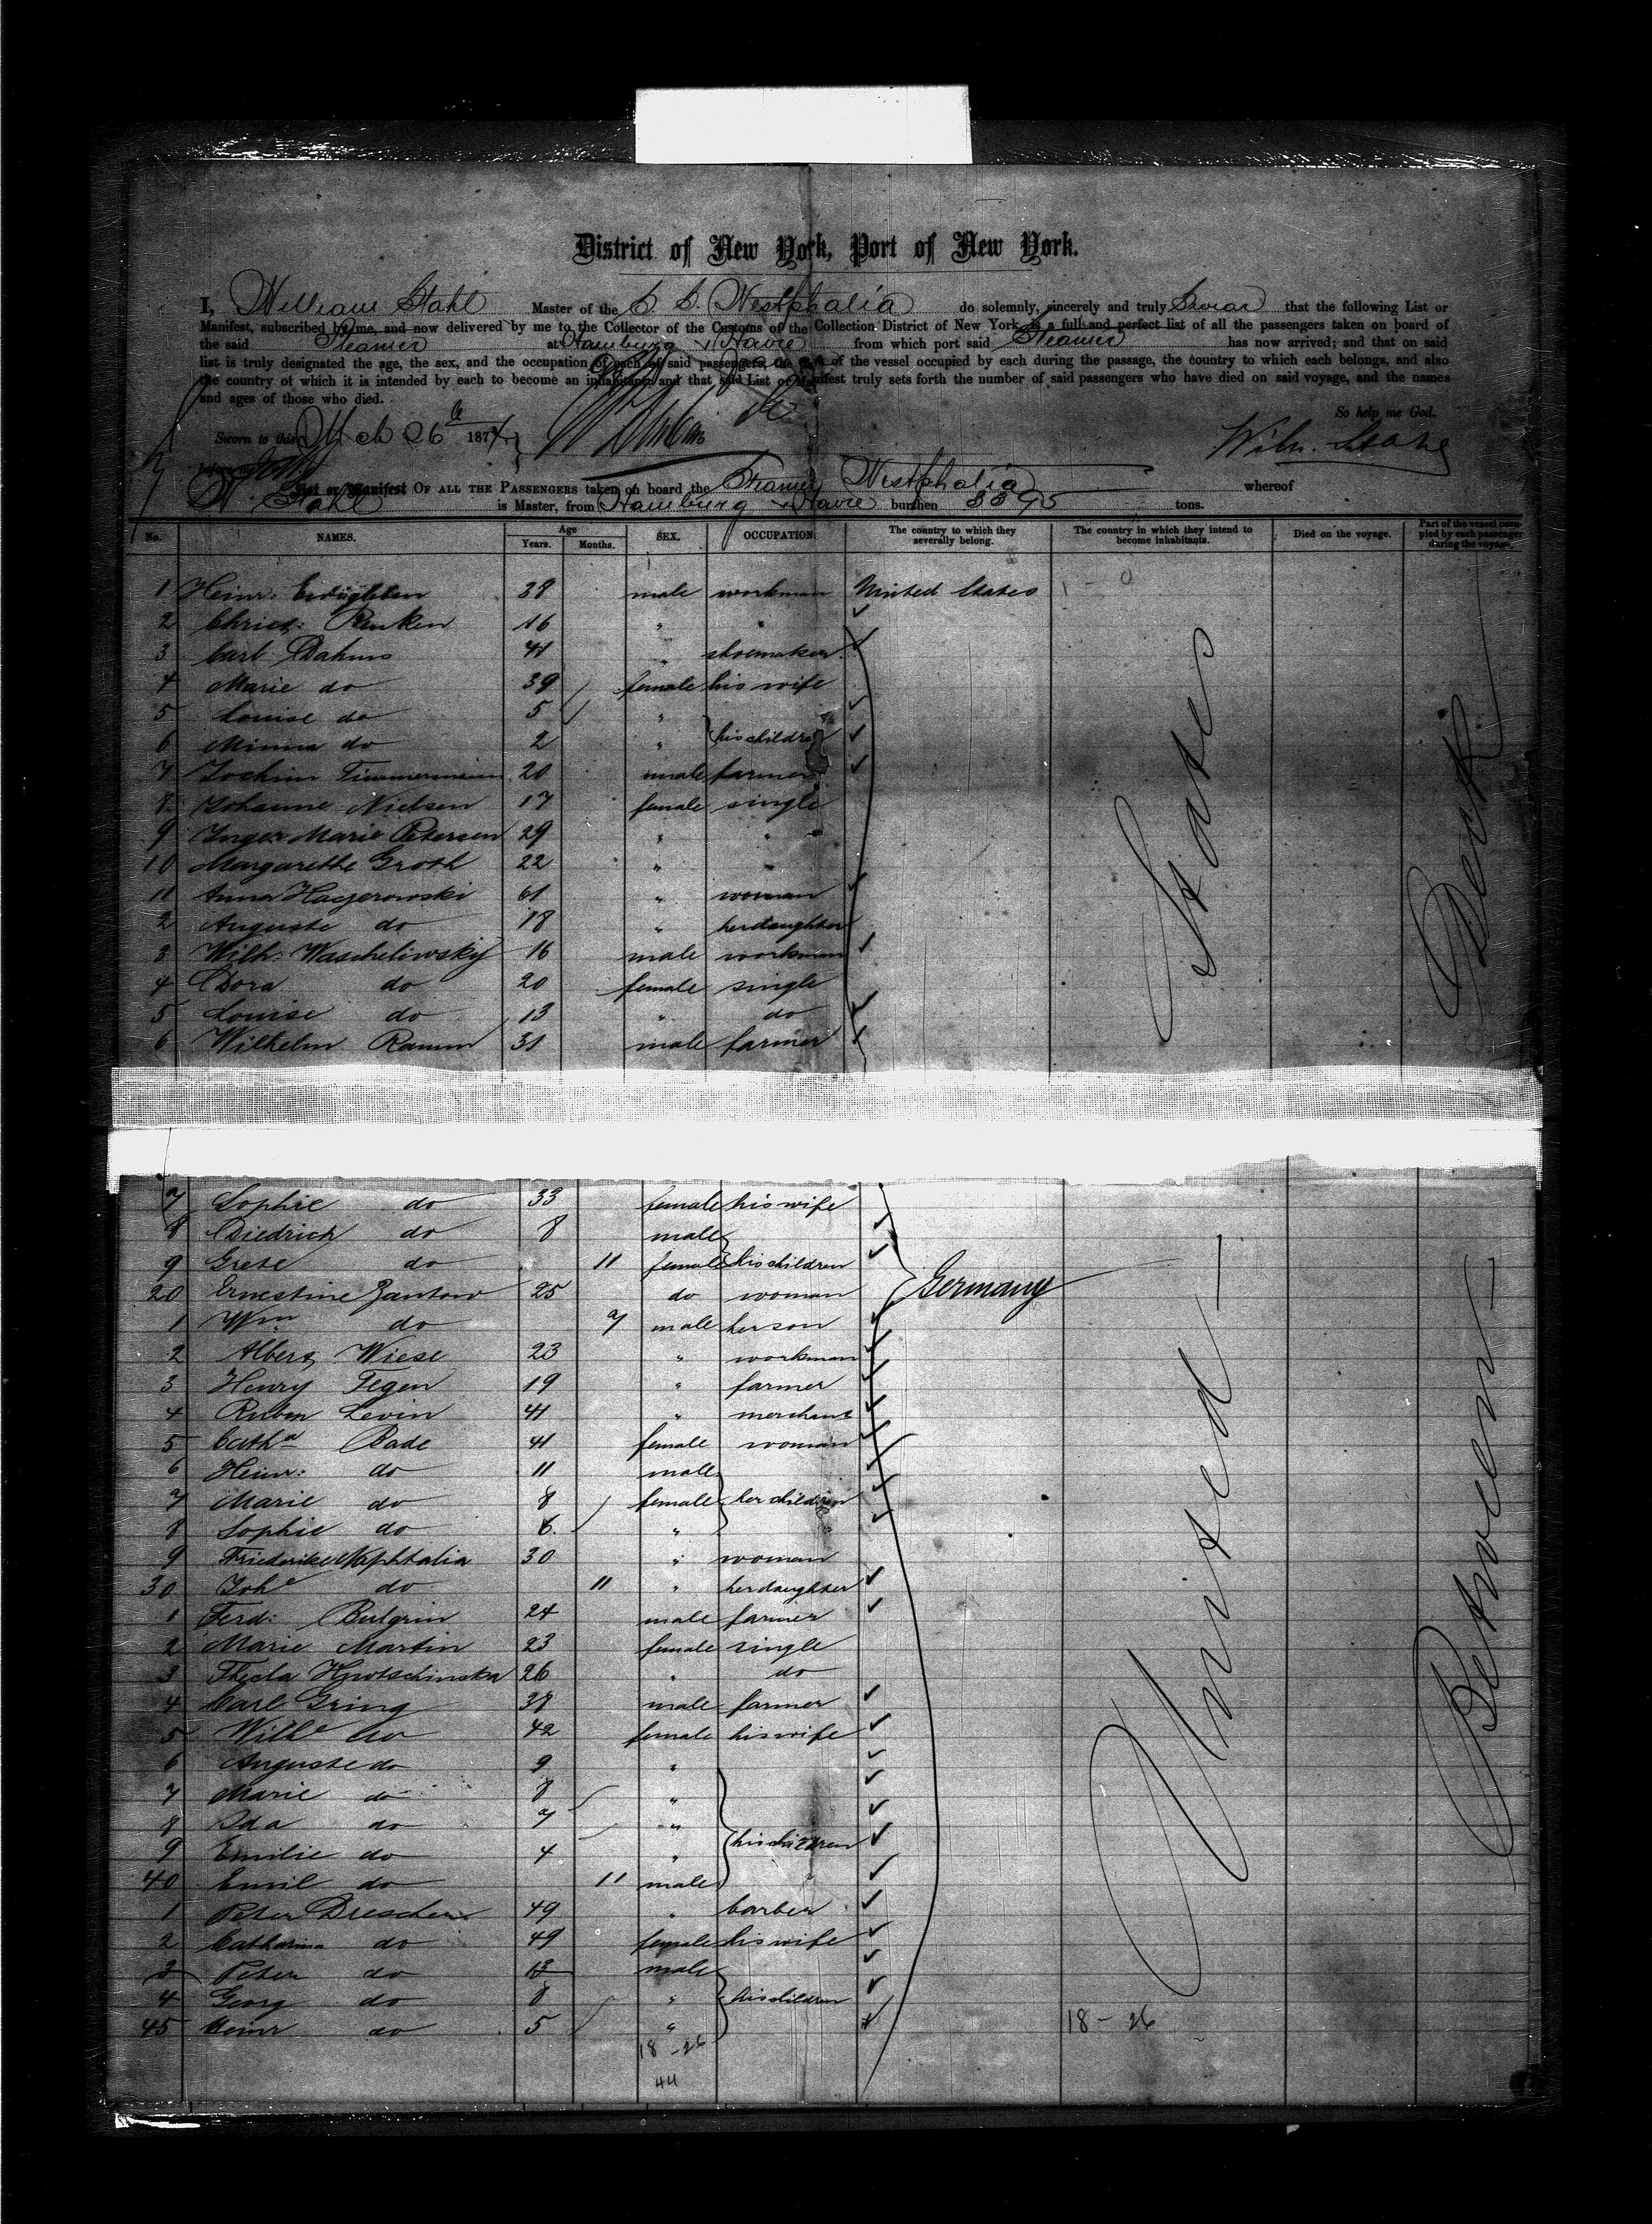 District of New York, Port of New York.
I, William Stahl Master of the S. S. Westphalia do solemnly, sincerely and truly Swear that the following List or
Manifest, subscribed by me, and now delivered by me to the Collector of the Customs of the Collection District of New York, is a full and perfect list of all the passengers taken on board of
the said Steamer at Hamburg & Havre from which port said Steamer has now arrived; and that on said
list is truly designated the age, the sex, and the occupation of each of said passengers, the part of the vessel occupied by each during the passage, the country to which each belongs, and also
the country of which it is intended by each to become an inhabitant; and that said List or Manifest truly sets forth the number of said passengers who have died on said voyage, and the names
and ages of those who died.
So help me God.
Sworn to this Mch 26th 1874
before me
List or Manifest OF ALL THE PASSENGERS taken on board the Steamer Westphalia whereof
W. Stahl is Master, from Hamburg & Havre burthen 3395 tons.
No. NAMES. Age Years. Months. SEX. OCCUPATION. The country to which they severally belong. The country in which they intend to become inhabitants. Died on the voyage. Part of the vessel occupied by each passenger during the voyage.
1 Heinr: 38 male workman United States 1 - 0
2 Christ: Renken 16 " "
3 Carl Dahms 41 " shoemaker
4 Marie do 39 female his wife
5 Louise do 5 "
6 Minna do 2 " his children
7 Jochim Timmermann 20 male farmer
8 Johanne Nielsen 17 female single
9 Inger Marie Petersen 29 " "
10 Margarethe Groth 22 " "
11 Anna Hagerowski 61 " woman
2 Auguste do 18 " her daughter
3 Wilh: Wascheliwsky 16 male workman
4 Dora do 20 female single
5 Louise do 13 " do
6 Wilhelm Ramm 31 male farmer
7 Sophie do 33 female his wife
8 Diedrich do 8 male
9 Grete do 11 female his children
20 Ernestine Zantow 25 do woman Germany
1 Wm do 9 male her son
2 Albert Wiese 23 " workman
3 Henry Tegen 19 " farmer
4 Ruben Levin 41 " merchant
5 Catha Bade 41 female woman
6 Heinr: do 11 male
7 Marie do 8 female her children
8 Sophie do 6 "
9 Friederike Naphtalia 30 " woman
30 Joh do 11 " her daughter
1 Ferd: Bulgrin 24 male farmer
2 Marie Martin 23 female single
3 Thecla Knotschinska 26 " do
4 Carl Gring 38 male farmer
5 Wilhe do 42 female his wife
6 Auguste do 9 "
7 Marie do 8 "
8 Ida do 7 "
9 Emilie do 4 " his children
40 Emil do 11 male
1 Peter Drescher 49 " barber
2 Catharina do 49 female his wife
3 Peter do 13 male
4 Georg do 8 " his children
45 Heinr do 5 "
18 - 26
18 - 26
44
United States
Between Deck